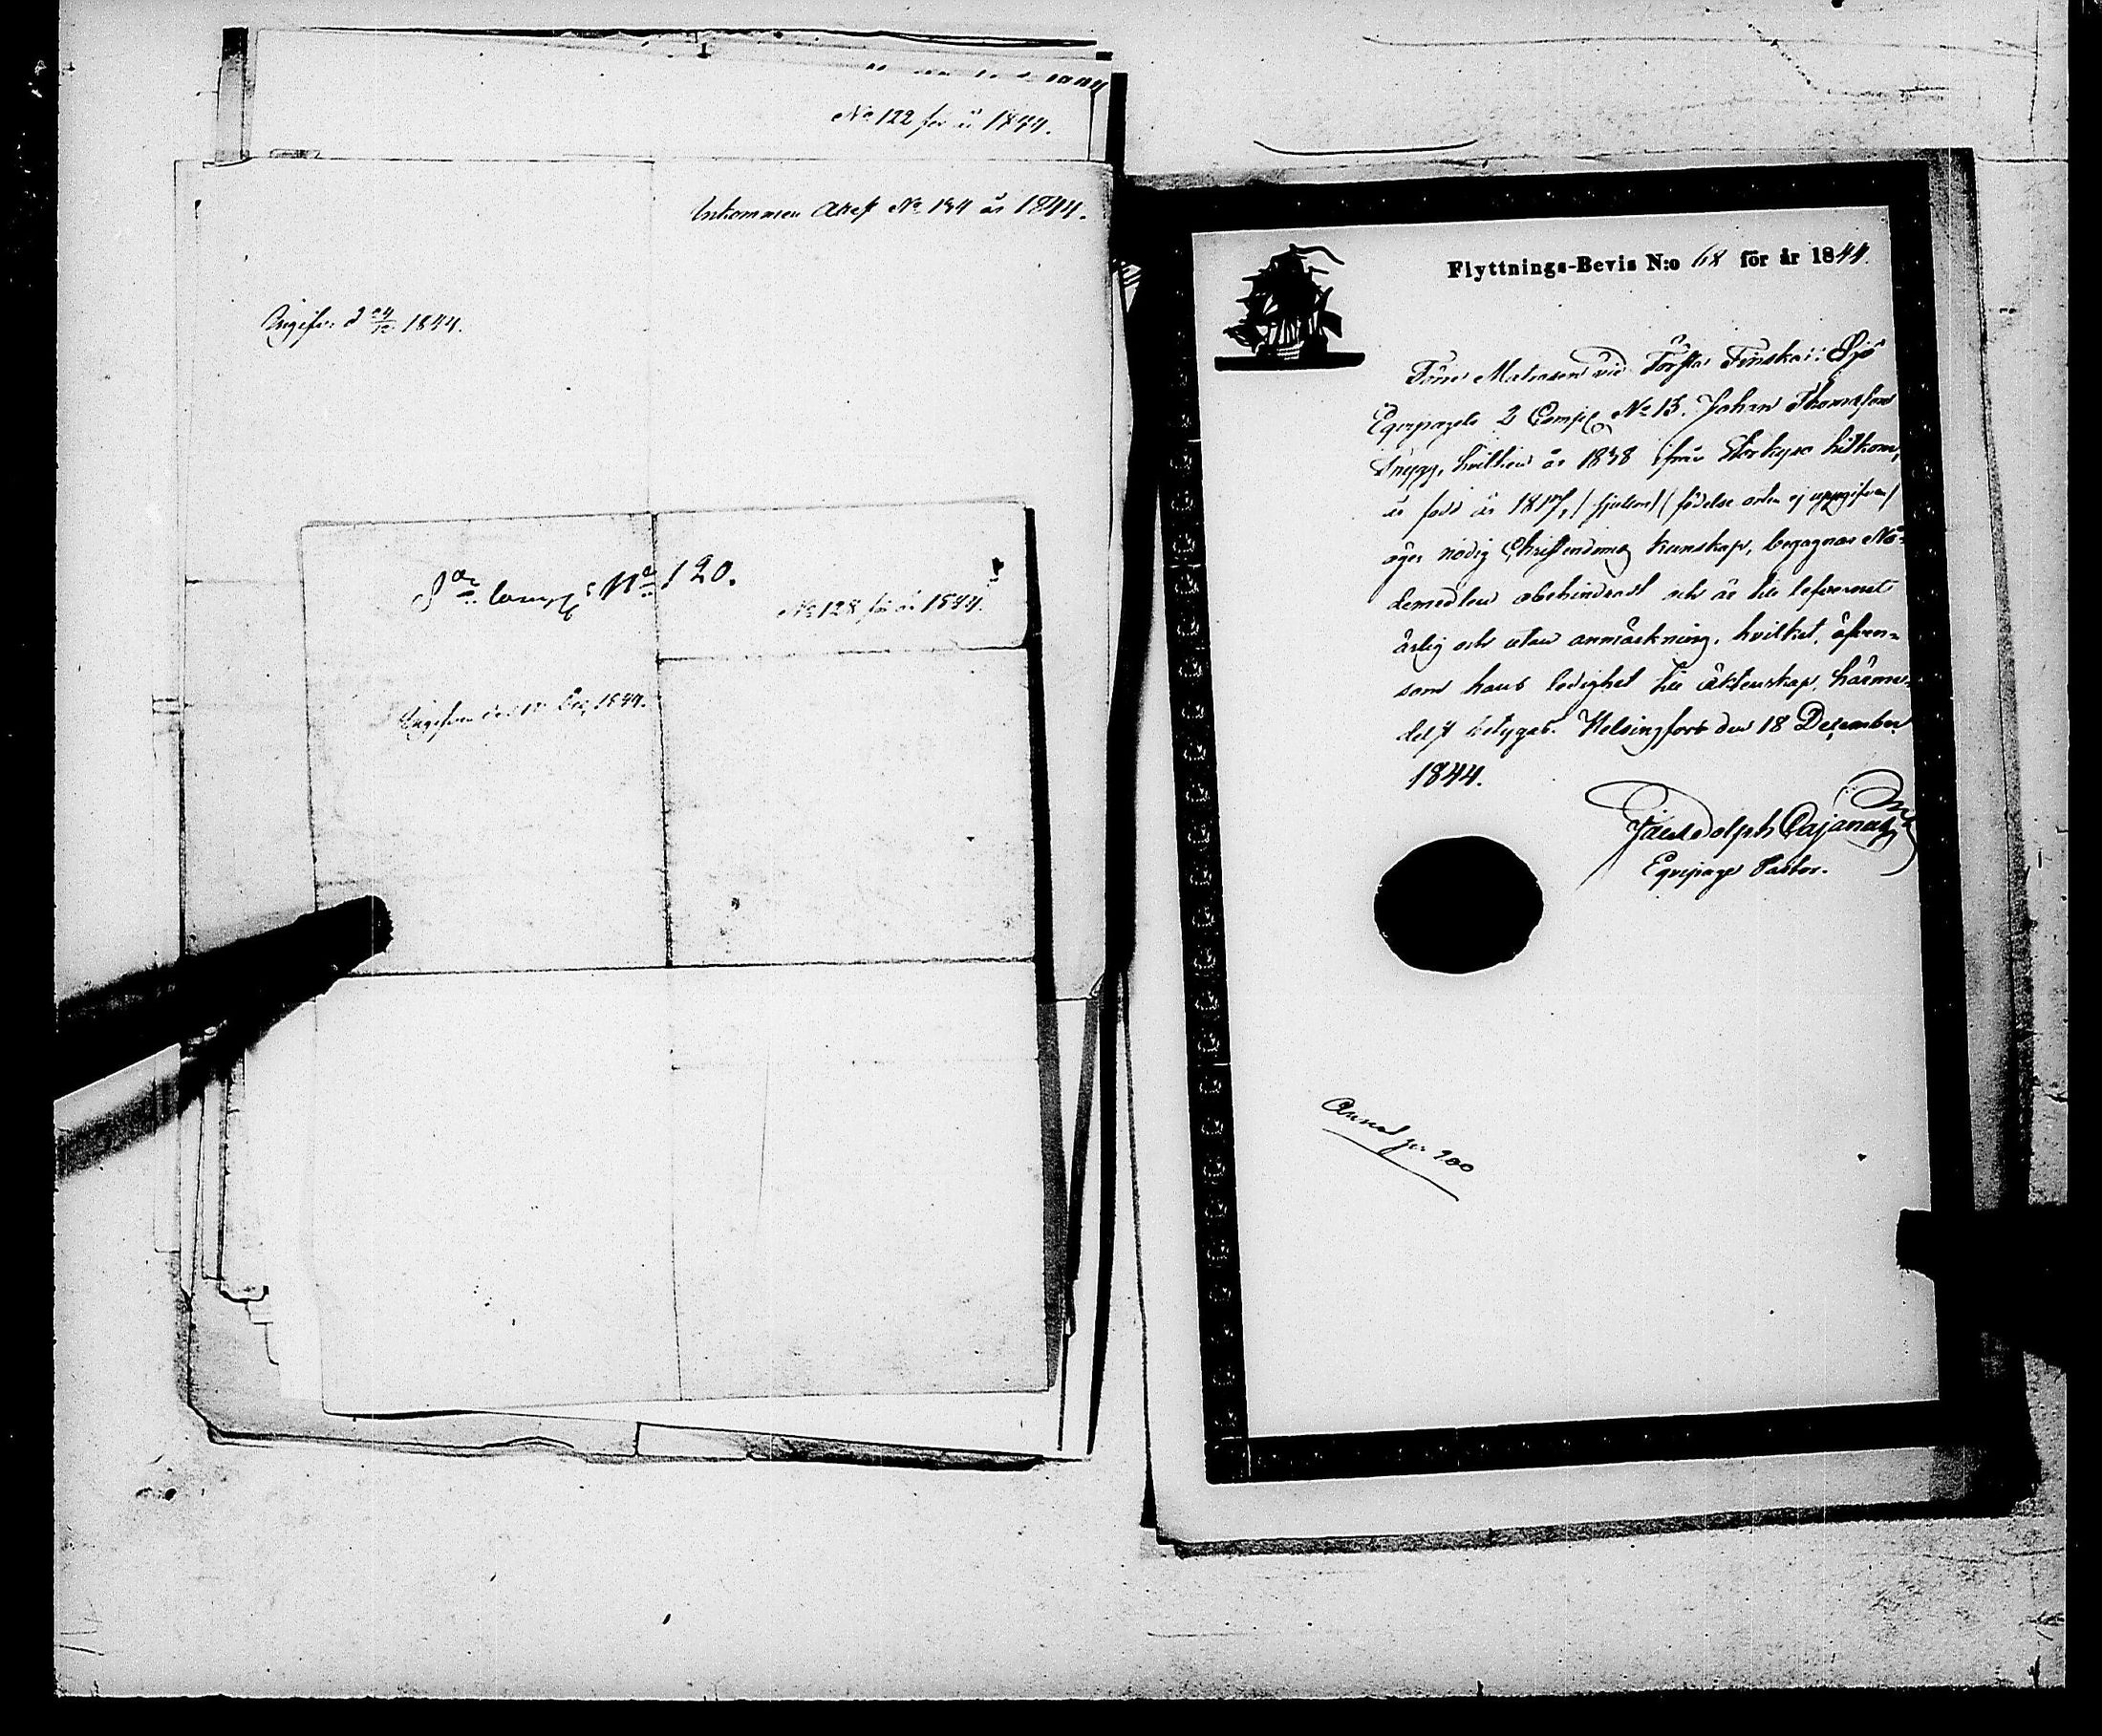 No 122 för år 1844.
Inkommen Attest No 134 år 1844.
Angifven d 24/12 1844.
8de Comp: No 120.
No 128 för år 1844.
Angifven den Dec, 1844.
Flyttnings-Bevis N:o 68 för år 1844.
Förre Matrosen vid Första Finska Sjö
Eqvipagets 2 Comp No 13. Johan Thomasson
Snygg, hvilken år 1838 ifrån Storkyro hitkom,
är född år 1817, (sjutton) (födelse orten ej uppgifven)
äger nödig Christendoms kunskap, begagnar Nå-
demedlen obehindradt och är till lefvernet
ärlig och utan anmärkning, hvilket, äfven-
som hans ledighet till äktenskap, härme-
delst betygas. Helsingfors den 18 December
1844.
Adolph Cajanus
Eqvipage Pastor.